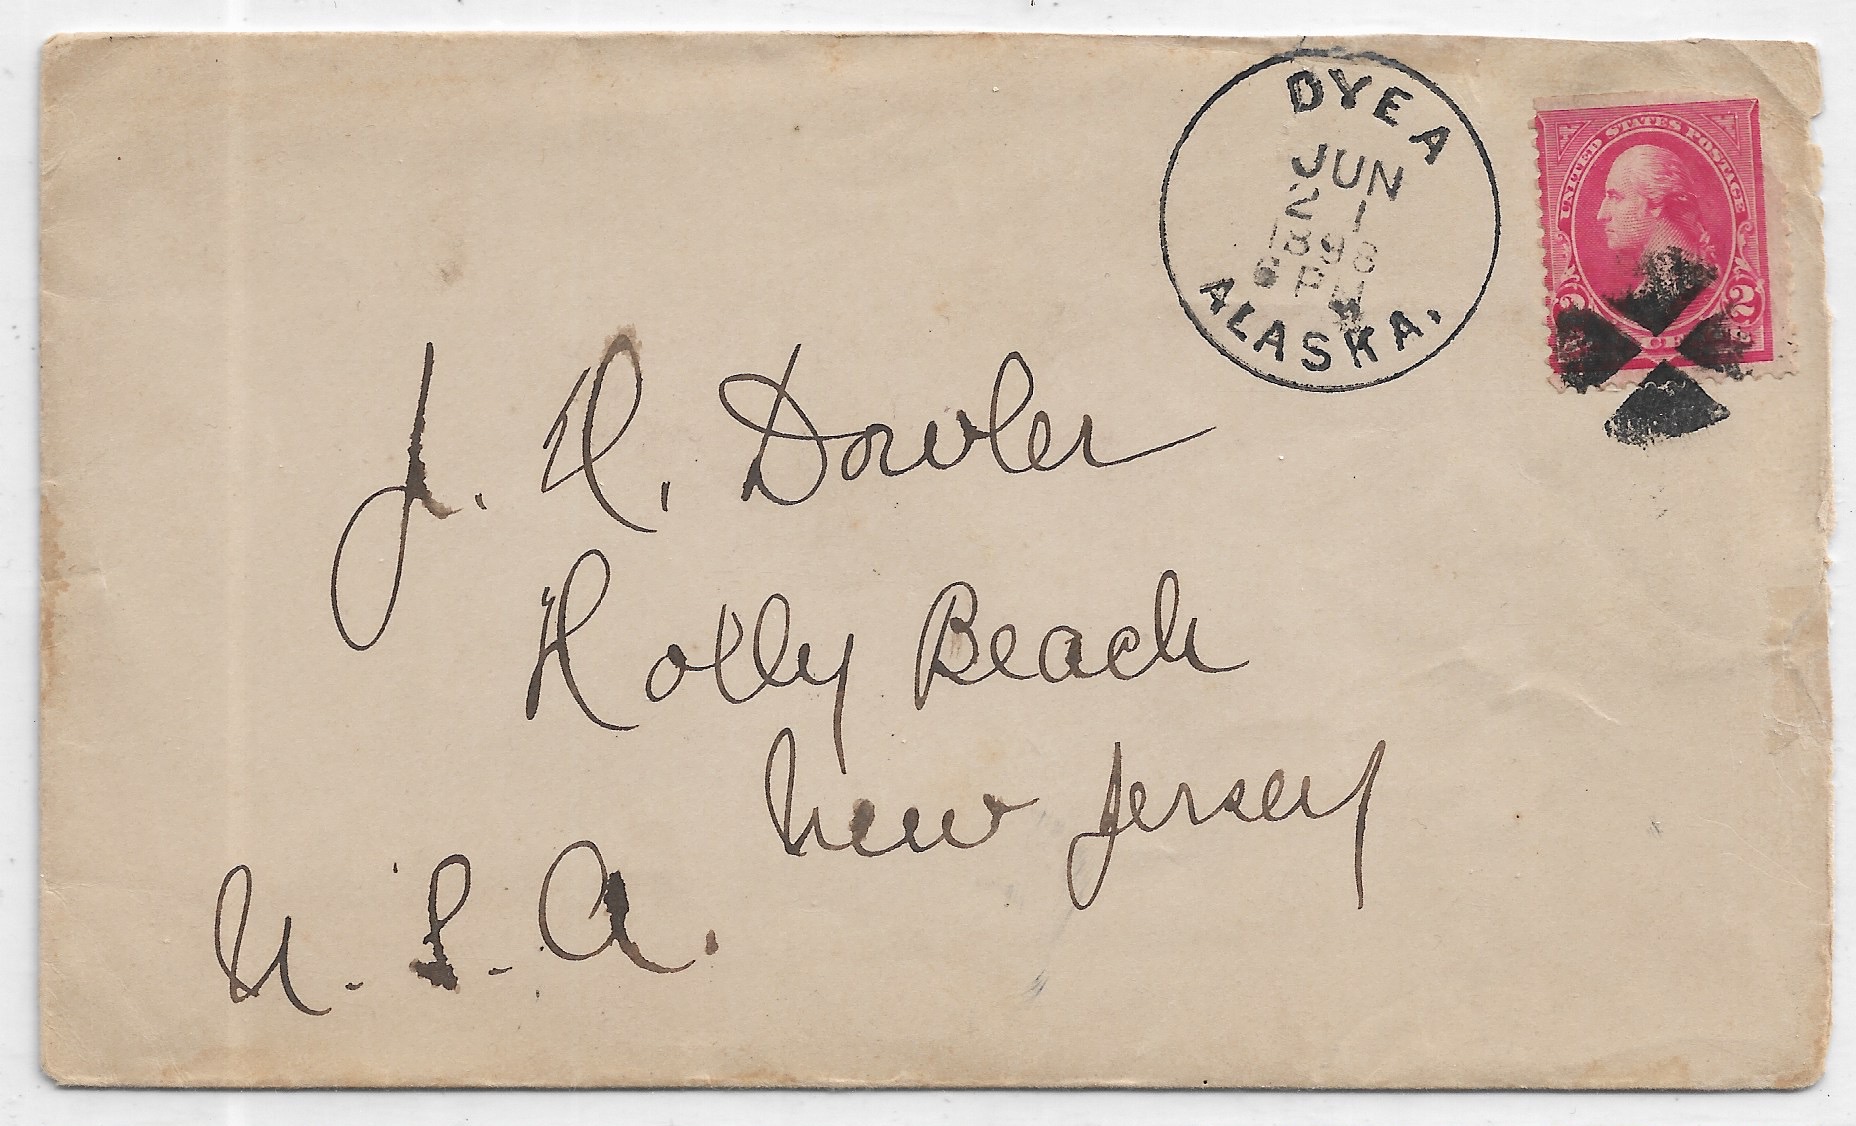 DYEA
JUN
21
1898
PM
ALASKA.
UNITED STATES POSTAGE
2 2
J. H. Dowler
Holly Beach
New Jersey
U. S. A.